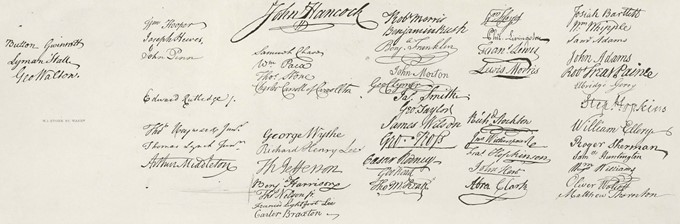 Button Gwinnett
Lyman Hall
Geo Walton.
Wm Hooper
Joseph Hewes,
John Penn
Edward Rutledge /.
Thos Heyward Junr.
Thomas Lynch Junr.
Arthur Middleton
John Hancock
Samuel Chase
Wm Paca
Thos. Stone
Charles Carroll of Carrollton
George Wythe
Richard Henry Lee
Th Jefferson
Benj Harrison
Thos Nelson jr.
Francis Lightfoot Lee
Carter Braxton
Robt Morris
Benjamin Rush
Benj. Franklin
John Morton
Geo Clymer
Jas. Smith
Geo. Taylor
James Wilson
Geo. Ross
Caesar Rodney
Geo Read
Tho M:Kean
Wm Floyd
Phil. Livingston
Frans. Lewis
Lewis Morris
Richd. Stockton
Jno Witherspoon
Fras. Hopkinson
John Hart
Abra Clark
Josiah Bartlett
Wm: Whipple
Saml Adams
John Adams
Robt Treat Paine
Elbridge Gerry
Step. Hopkins
William Ellery
Roger Sherman
Saml Huntington
Wm Williams
Oliver Wolcott
Matthew Thornton